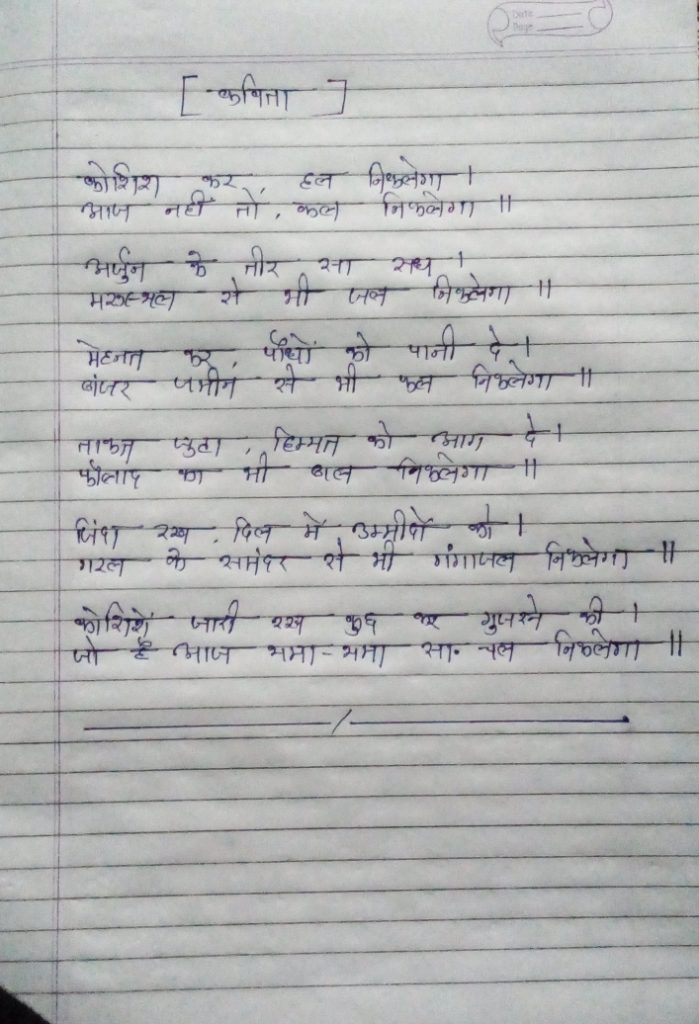 Date
Page
[ कविता ]
कोशिश कर, हल निकलेगा ।
आज नहीं तो, कल निकलेगा ॥
अर्जुन के तीर सा सध ।
मरूस्थल से भी जल निकलेगा ॥
मेहनत कर, पौधों को पानी दे ।
बंजर जमीन से भी फल निकलेगा ॥
ताकत जुटा, हिम्मत को आग दे ।
फौलाद का भी बल निकलेगा ॥
जिंदा रख, दिल में उम्मीदों को ।
गरल के समंदर से भी गंगाजल निकलेगा ॥
कोशिशें जारी रख कुछ कर गुजरने की ।
जो है आज थमा-थमा सा. चल निकलेगा ॥